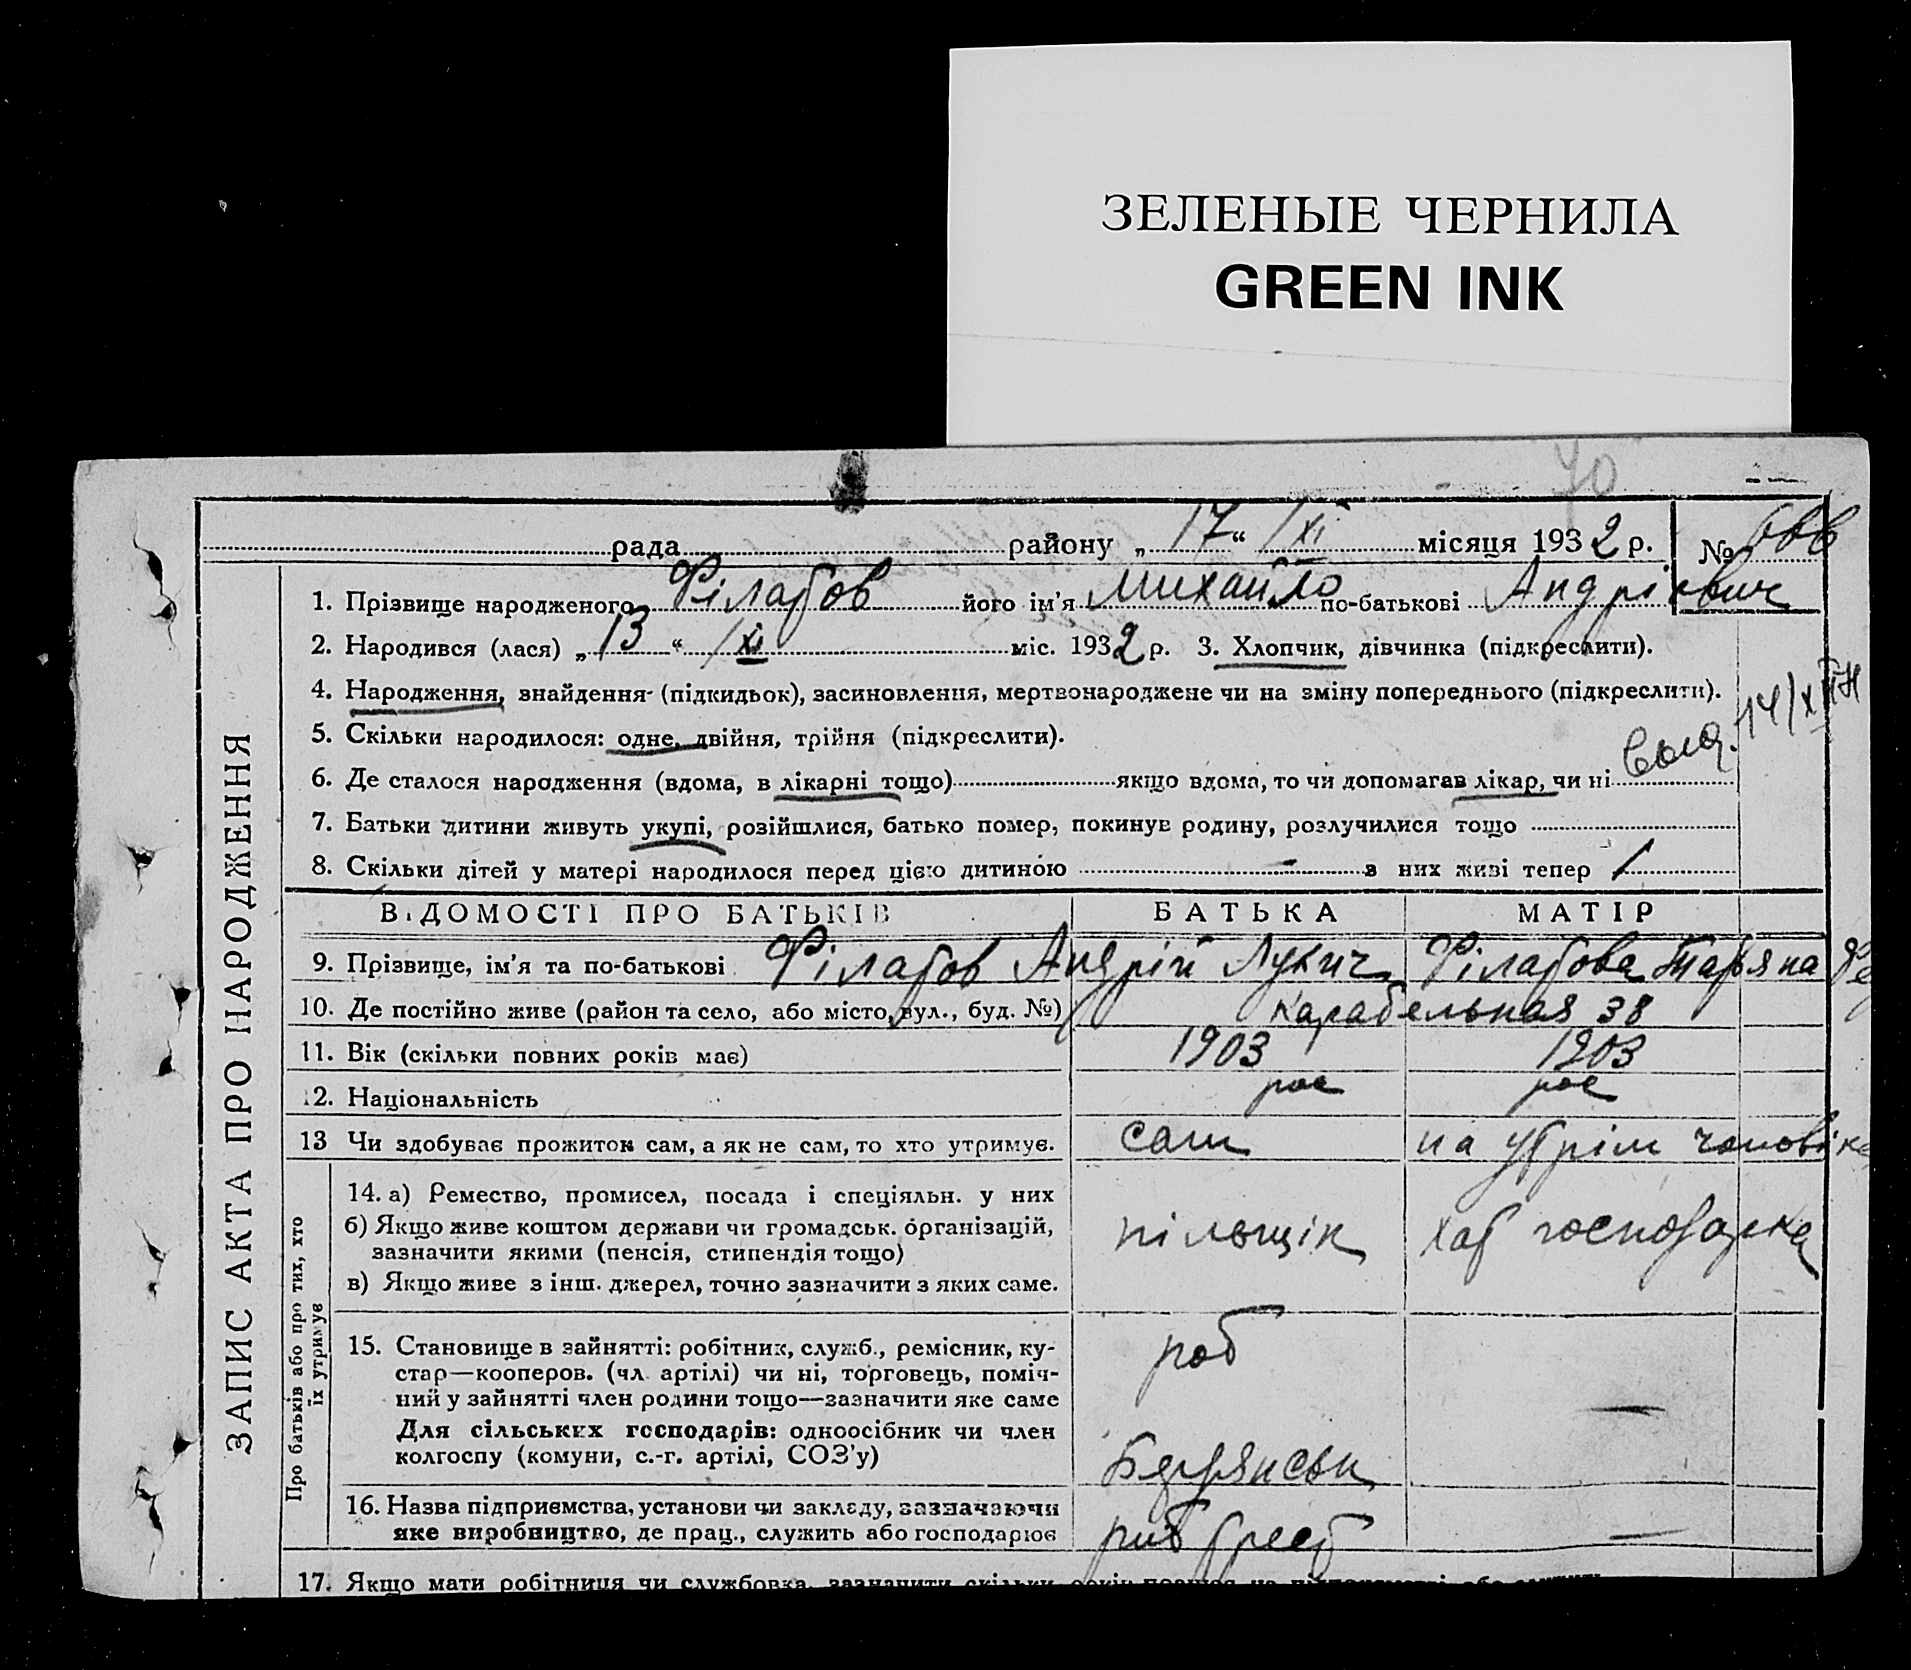 ЗЕЛЕНЫЕ ЧЕРНИЛА
GREEN INK
40
рада района „ 17 “ /XI місяця 1932 р. №
1. Прізвище народженого Філатов його ім'я Михайло по-батькові Андрієвич
2. Народився (лася) „ 13 “ /XI міс. 1932 р. 3. Хлопчик, дівчинка (підкреслити).
4. Народження, знайдення (підкидьок), засиновлення, мертвонароджене чи на зміну попереднього (підкреслити).
5. Скільки народилося: одне, двійня, трійня (підкреслити).
6. Де сталося народження (вдома, в лікарні тощо) якщо вдома, то чи допомагав лікар, чи ні
7. Батьки дитини живуть укупі, розійшлися, батько помер, покинув родину, розлучилися тощо
8. Скільки дітей у матері народилося перед цією дитиною – з них живі тепер /
ЗАПИС АКТА ПРО НАРОДЖЕННЯ
ВІДОМОСТІ ПРО БАТЬКІВ БАТЬКА МАТІР
9. Прізвище, ім'я та по-батькові Філатов Андрій Лукич Філатова Татьяна
10. Де постійно живе (район та село, або місто, вул., буд. №) Карабельная 38
11. Вік (скільки повних років має) 1903 1903
12. Національність рос рос
13 Чи здобуває прожиток сам, а як не сам, то хто утримує. сам на утрім чоловіка
Про батьків або про тих, хто їх утримує
14. а) Ремество, промисел, посада і спеціяльн. у них
б) Якщо живе коштом держави чи громадськ. організацій,
зазначити якими (пенсія, стипендія тощо) пільщік хат господарка
в) Якщо живе з інш. джерел, точно зазначити з яких саме.
15. Становище в зайнятті: робітник, служб., ремісник, ку- роб
стар—кооперов. (чл. артілі) чи ні, торговець, поміч-
ний у зайнятті член родини тощо—зазначити яке саме –
Для сільських господарів: одноосібник чи член
колгоспу (комуни, с.-г. артілі, СОЗ'у)
16. Назва підприємства, установи чи закладу, зазначаючи
яке виробництво, де прац., служить або господарює –
17. Якщо мати робітниця чи службовка, зазначити скільки